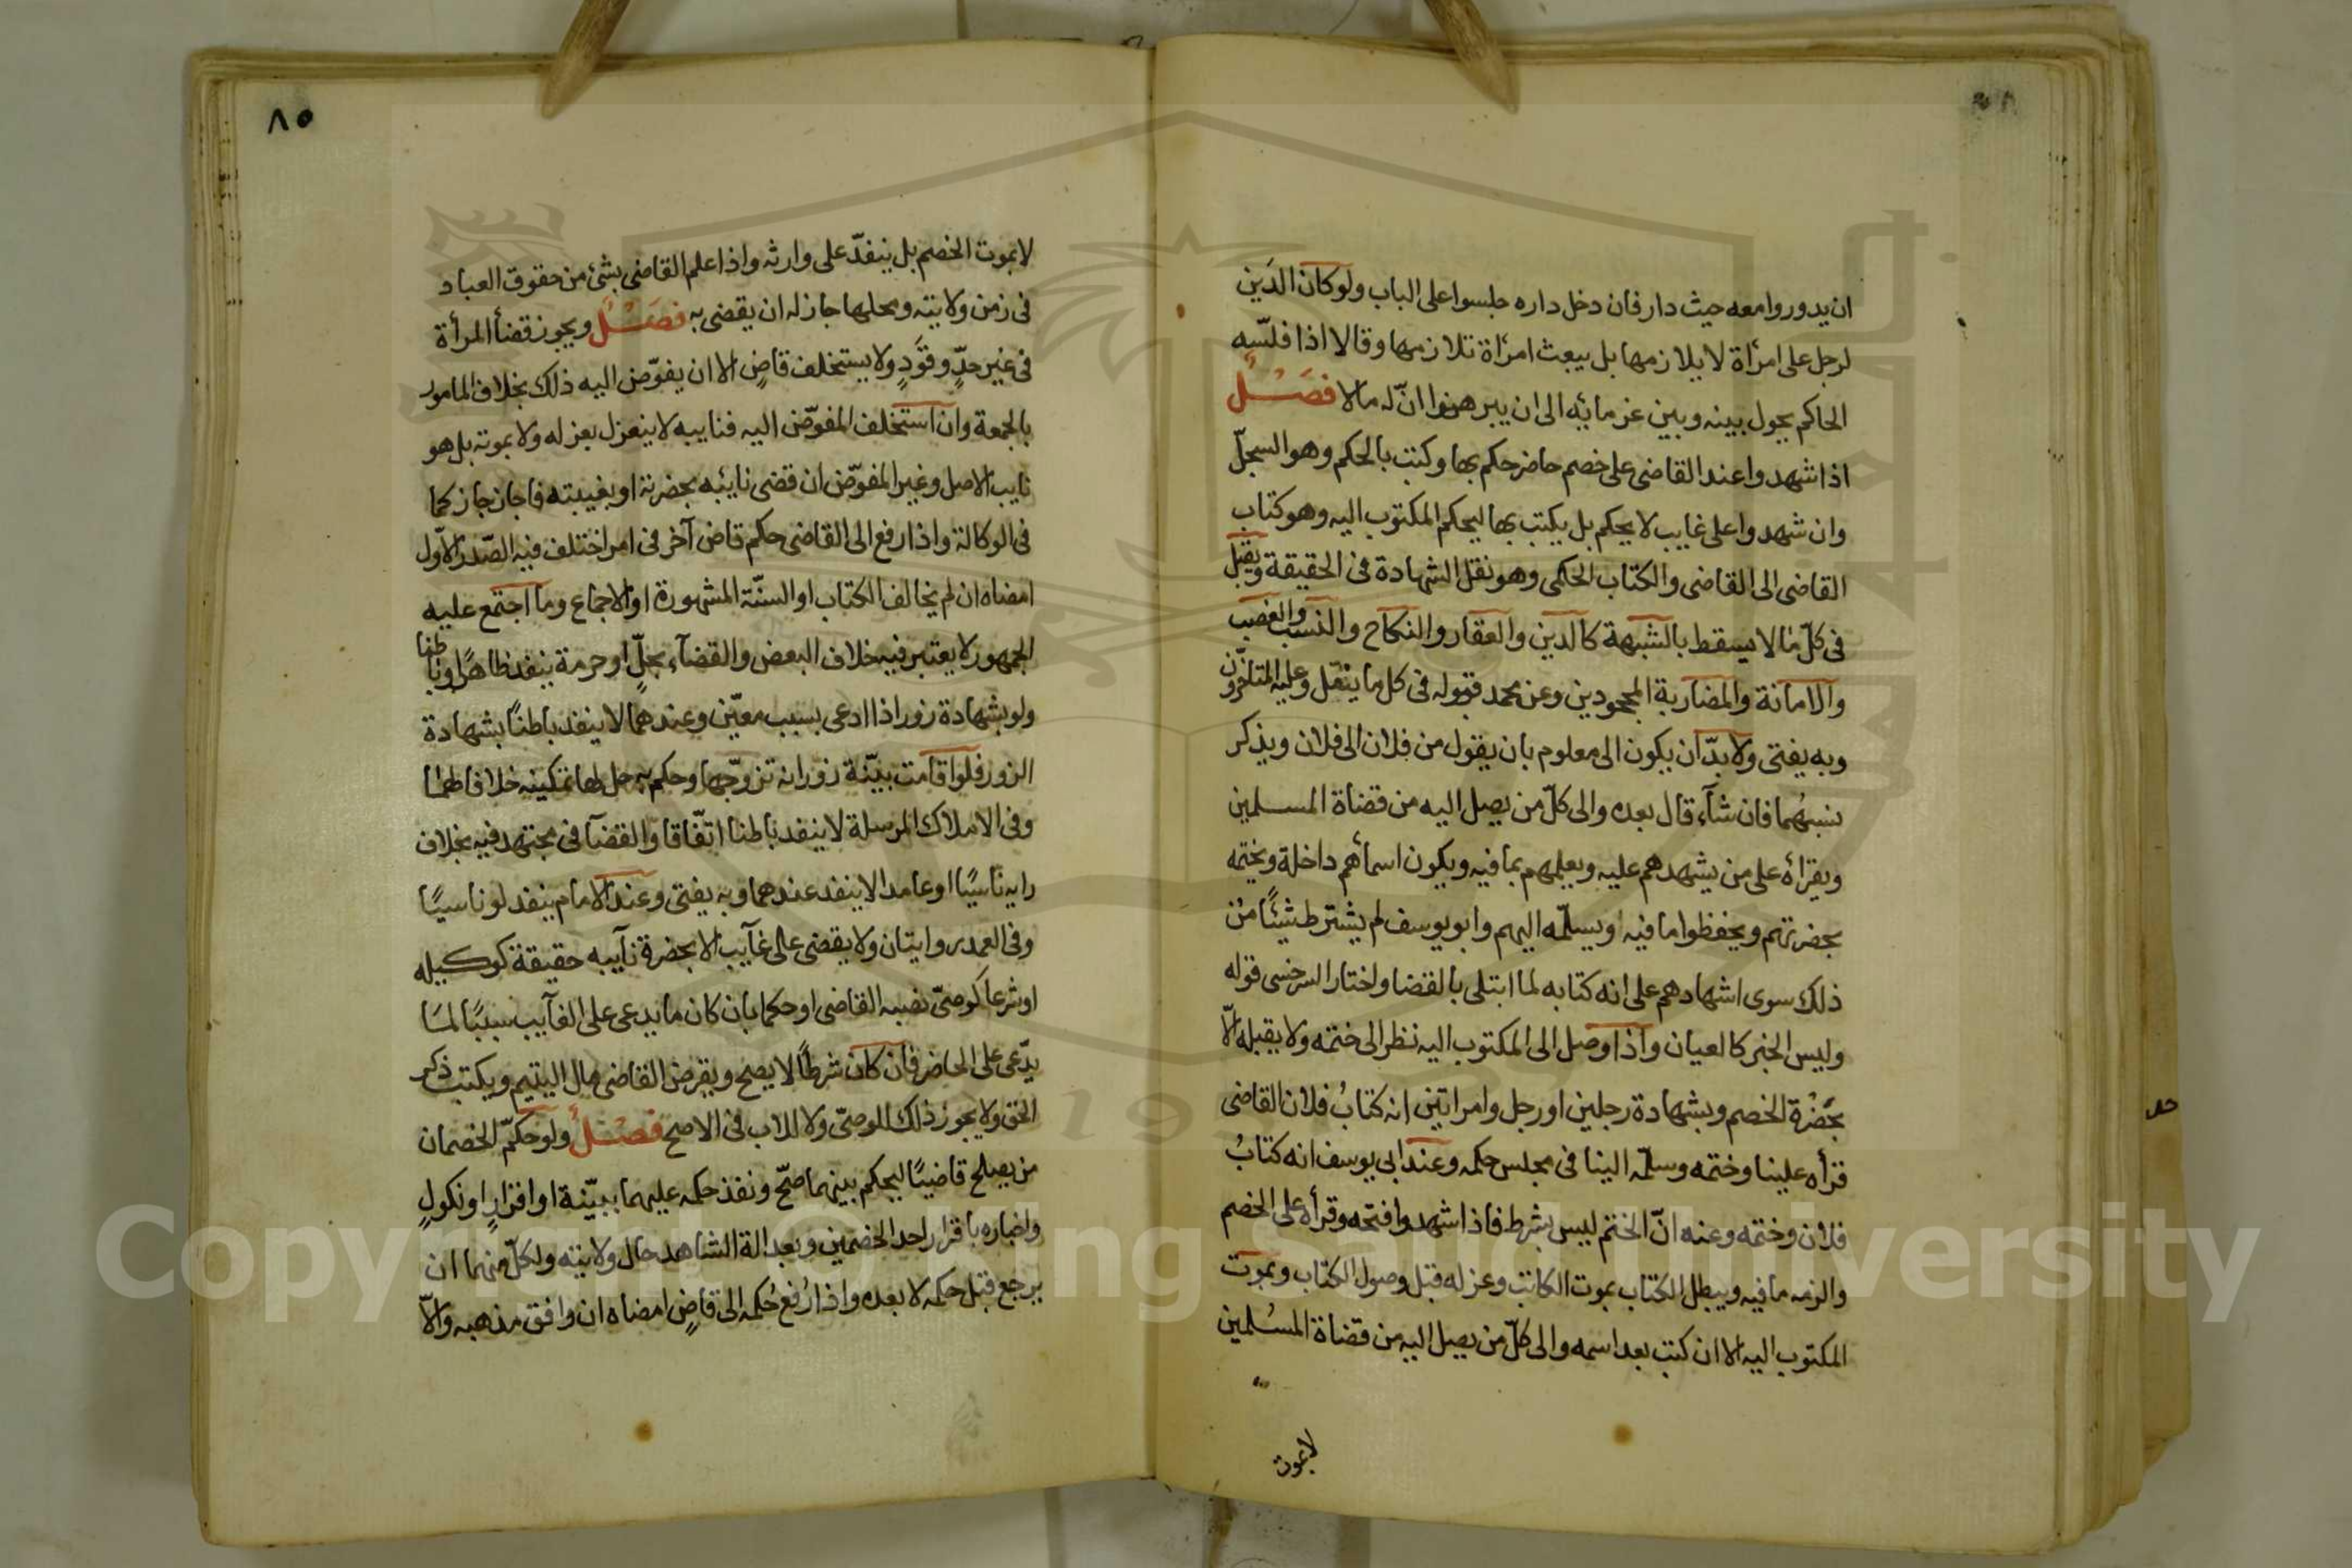 ان يدوروا معه حيث دار فان دخل داره جلسوا على الباب ولو كان الدَين
لرجل على امرأة لا يلازمها بل يبعث امرأة تلازمها وقالا اذا فلّسه
الحاكم يحول بينه وبين غرمائه الى ان يبرهنوا انّ له مالا فصل
اذا شهدوا عند القاضى على خصم حاضر حكم بها وكتب بالحكم وهو السجلّ
وان شهدوا على غايب لا يحكم بل يكتب بها ليحكم المكتوب اليه وهو كتاب
القاضى الى القاضى والكتاب الحكمى وهو نقل الشهادة فى الحقيقة ويقبل
فى كلّ ما لا يسقط بالشبهة كالدين والعقار والنكاح والنسب والغصب
والامانة والمضاربة المجحودين وعن محمد قبوله فى كل ما ينقل وعليه المتأخرون
وبه يفتى ولا بدّ ان يكون الى معلوم بان يقول من فلان الى فلان ويذكر
نسبهُما فان شآء قال بعده والى كلّ من يصل اليه من قضاة المسلمين
ويقرأه على من يشهدهم عليه ويعلمهم بما فيه ويكون اسمأهم داخلة ويختمه
بحضرتهم ويحفظوا ما فيه ويسلّمه اليهم وابو يوسف لم يشترط شيئًا من
ذلك سوى اشهادهم على انه كتابه لما ابتلى بالقضا واختار السرخسى قوله
وليس الخبر كالعيان واذا وصل الى المكتوب اليه نظر الى ختمه ولا يقبله الّا
بحَضْرة الخصم وبشهادة رجلين او رجل وامراتين انه كتابُ فلان القاضى
قرأه علينا وختمه وسلمّه الينا فى مجلس حكمه وعند ابى يوسف انه كتابُ
فلان وختمه وعنه انّ الختم ليس بشرط فاذا شهدوا فتحه وقرأه على الخصم
والزمه ما فيه ويبطل الكتاب بموت الكاتب وعزله قبل وصول الكتاب وبموت
المكتوب اليه الا ان كتب بعد اسمه والى كلّ من يصل اليه من قضاة المسُلمين
لا بموت
٨٥
لا بموت الخصم بل ينفذّ على وارثه واذا علم القاضى بشئ من حقوق العباد
فى زمن ولايته ومحلها جاز له ان يقضى به فصَل ويجوز قضأ المرأة
فى غير حدٍّ وقَودٍ ولا يستخلف قاضٍ الا ان يفوّض اليه ذلك بخلاف المامور
بالجمعة وان استخلف المفوّض اليه فنايبه لا ينعزل بعزله ولا بموته بل هو
نايب الاصل وغير المفوّض ان قضى نائبه بحضرته او بغيبته فاجاز جاز كما
فى الوكالة واذا رفع الى القاضى حكم قاض آخر فى امر اختلف فيه الصّدر الاوّل
امضاه ان لم يخالف الكتاب او السنّة المشهورة او الاجماع وما اجتمع عليه
الجمهور لا يعتبر فيه خلاف البعض والقضآء بحلٍّ او حرمة ينفذ ظاهرًا وباطنا
ولو بشهادة زور اذا ادعى بسبب معيّن وعندهما لا ينفذ باطنًا بشهادة
الزور فلو اقامت بيّنة زور انه تزوّجها وحكم به حل لها تمكينه خلافا لهما
وفى الاملاك المرسلة لا ينفد باطنا اتفّاقا والقضآ فى مجتهد فيه بخلاف
رايه ناسيًا او عامدا لا ينفد عندهما وبه يفتى وعند الامام ينفد لو ناسيًا
وفى العمد روايتان ولا يقضى على غآيب الا بحضرة نآيبه حقيقة كوكيله
او شرعا كوصىّ نصبه القاضى او حكما بان كان ما يدعى على الغآيب سببًا لمَا
يدّعى على الحاضر فان كان شرطًا لا يصح ويقرض القاضى مال اليتيم ويكتب ذكر
الحق ولا يجوز ذلك للوصىّ ولا للاب فى الاصح فصْلُ ولو حكّم الخصمان
من يصلح قاضيًا ليحكم بينهما صحّ ونفذ حكمه عليهما ببيّنة او اقرارٍ او نكولٍ
واخباره باقرار احد الخصمين وبعدالة الشاهد حال ولايته ولكلّ منهما ان
يرجع قبل حكمه لا بعده واذا رُفع حُكمه الى قاضٍ امضاه ان وافق مذهبه والّا
Copyright © King Saud University